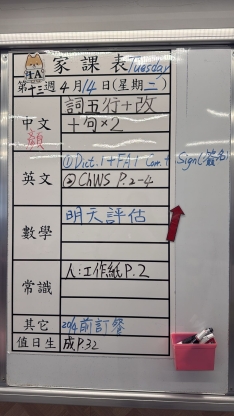 家課表 Tuesday
第十三週 4月14日(星期二)
中文 詞五行+改
十句×2
英文 ①Dict. 1+FA1 Corr. + Sign(簽名)
② ChWS P.2-4
數學 明天評估
常識 人:工作紙P.2
其它 20/4前訂餐
值日生 成P.32